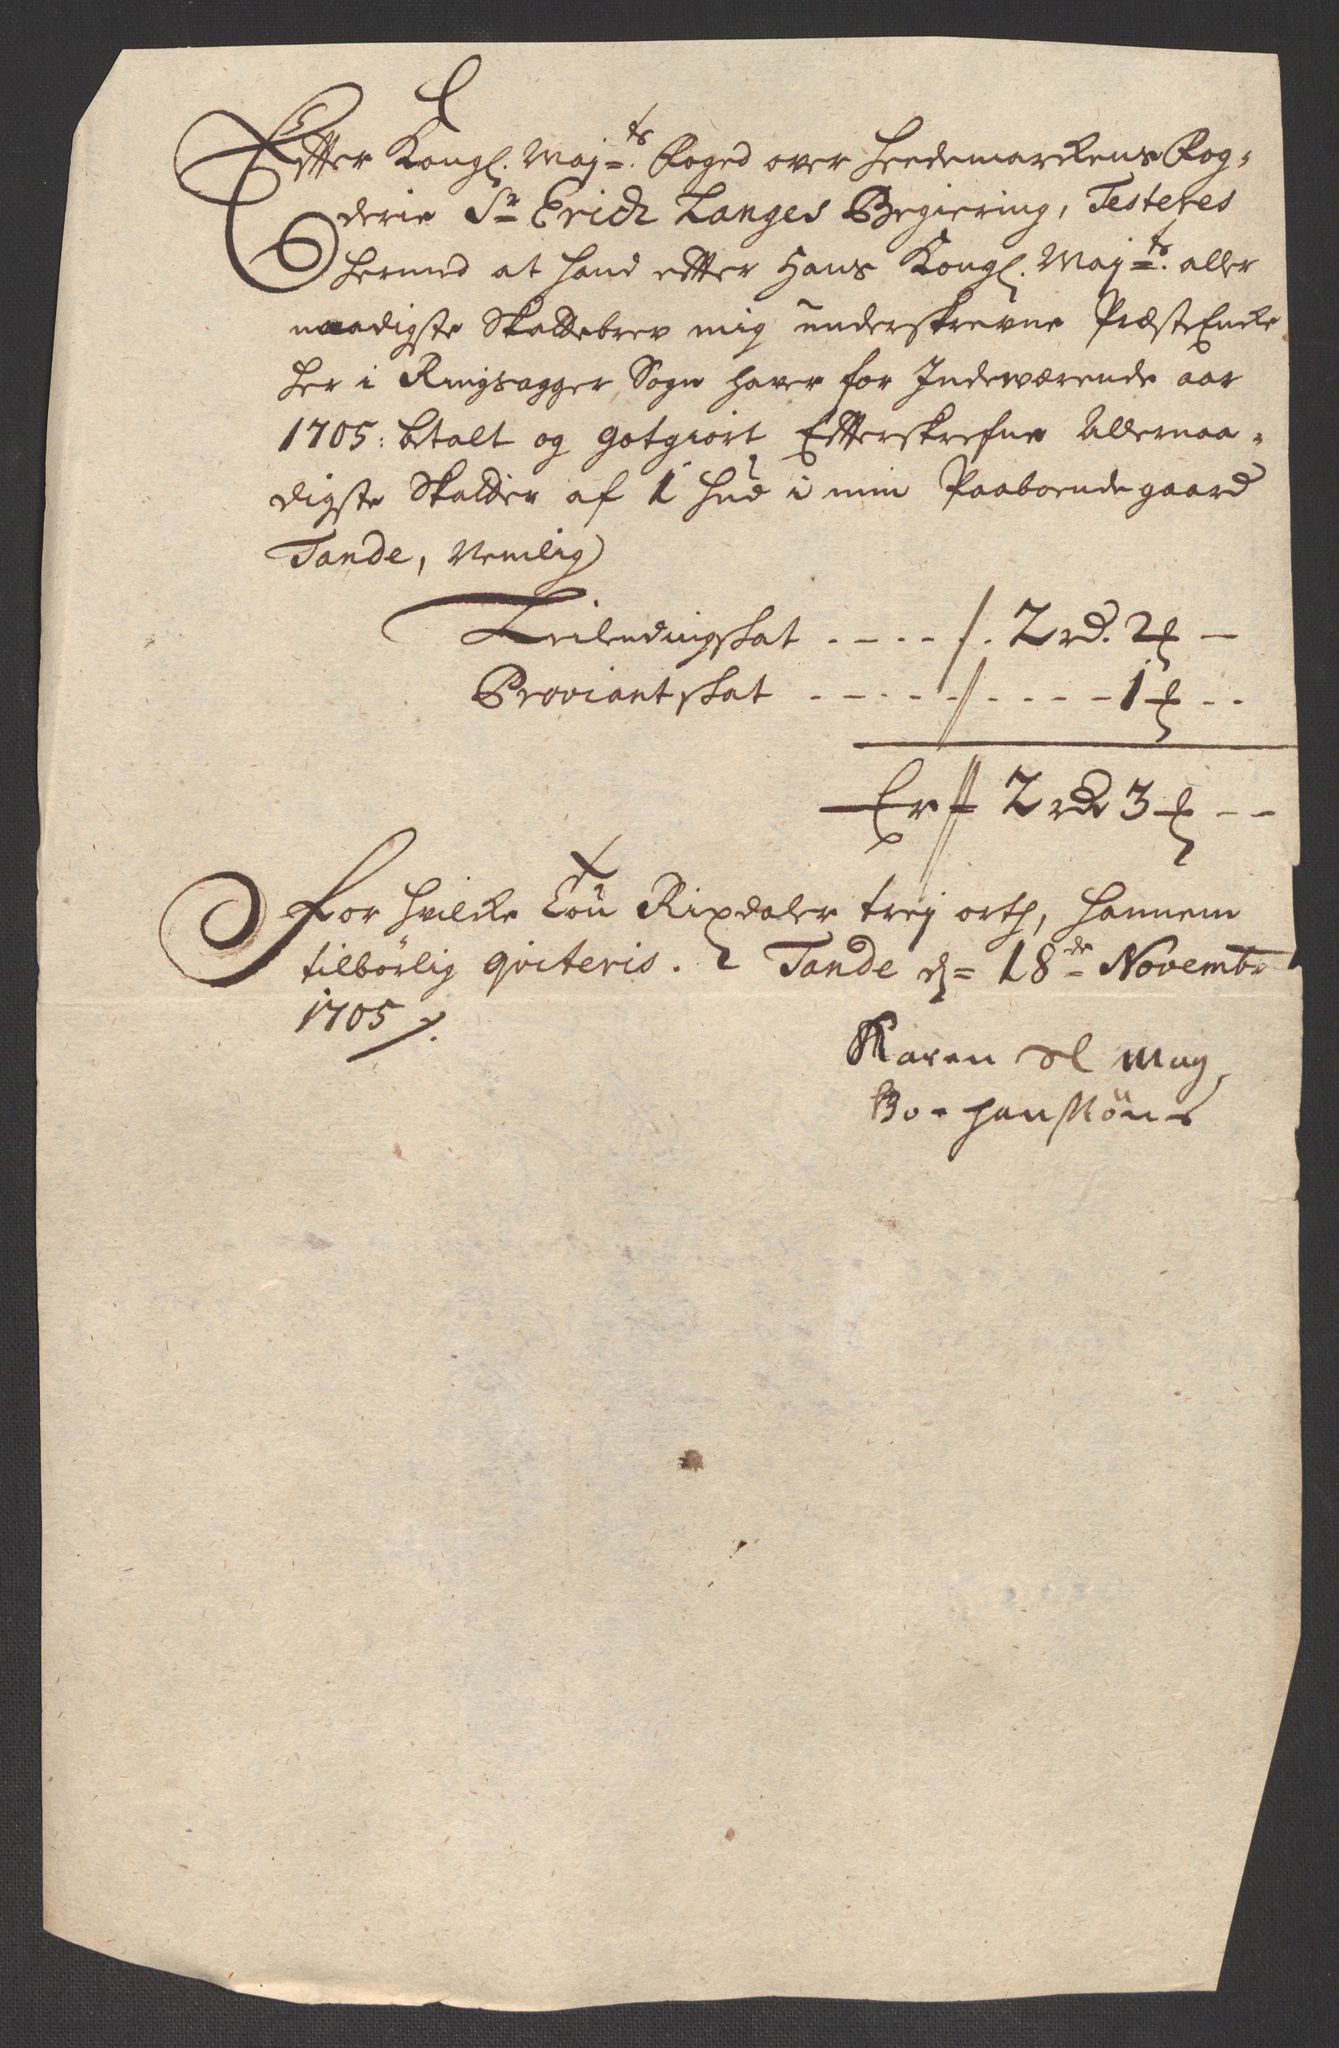 Efter Kongl. Maj=ts. Foged over Heedemarckens Fog-
derie Sr Erich Langes Begiering, Testeres
hermed at hand efter Hans Kongl. Maj=ts. aller
naadigste Skattebrev mig underskrevne PræsteEncke
her i Ringsagger Sogn haver for Indeværende aar
1705: betalt og gotgiort Efterskrefne Allernaa-
digste Skatter af 1 Hud i min Paaboende gaard
Tande, Nemlig
Leilendingskat . - . - . - . 2 rd. 2 ₰ -
Proviantskat . - . - . - . - - - 1 ₰ . .
Er 2 rd 3 ₰ - -
For hvilke Tou Rixdaler trej orth, hannem
tilbørlig qviteris. Tande d= 18de Novembr
1705
Karen Sl Mag